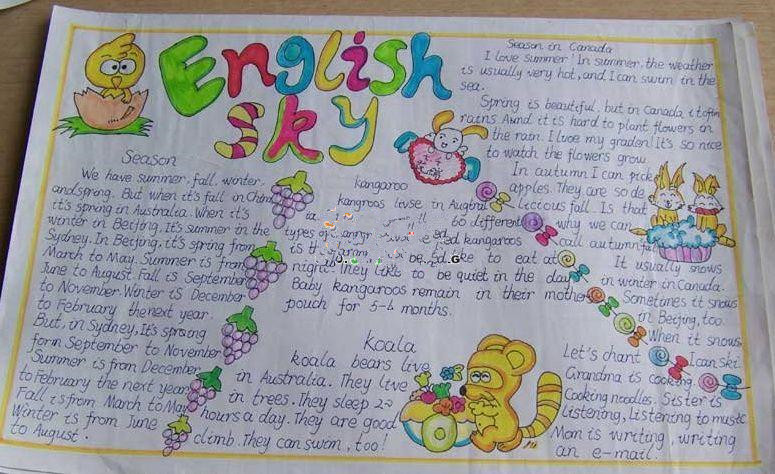 English
Sky
Season
We have summer, fall, winter,
and spring. But when it's fall in China
it's spring in Australia. When it's
winter in Beijing. It's summer in the
Sydney. In Beijing, it's spring from
March to May. Summer is from
June to August. Fall is September
to November. Winter is December
to February the next year.
But, in Sydney, It's spring
form September to November
Summer is from December
to February the next year,
Fall is from March to May
Winter is from June
to August.
kangaroo
kangroos livse in
60 different
types of
ed kangaroos
is the
like to eat at
night. They like to be quiet in the day
Baby kangaroos remain in their mother
pouch for 5-6 months.
Koala
koala bears live
in Australia. They live
in trees. They sleep
hours a day. They are good
climb. They can swom, too!
Season in Canada
I love summer! In summer, the weather
is usually very hot, and I can swim in the
sea.
Spring is beautiful, but in Canada it often
rains And it is hard to plant flowers in
the rain. I lvoe my graden! It's so nice
to watch the flowers grow.
In autumn I can pick
apples. They are so de
licious fall. Is that
why we can
call autumn fall
It usually snows
in winter in Canada.
Sometimes it snows
in Beijing, too.
When it snows
I can ski.
Let's chant
Grandma is cooking
Cooking noodles. Sister is
listening, Listening to music
Mom is writing, writing
an e-mail!